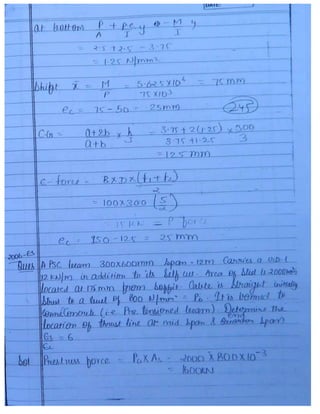 DATE
at bottom P/A + Pe/I y - M/I y
= 2.5 + 2.5 - 3.75
= 1.25 N/mm²
Shift x̄ = M/P = 5.625X10⁶/75X10³ = 75 mm
ec = 75 - 50 = 25mm
245
C.G = a+2b/a+b x h/3 = 3.75+2(1.25)/3.75+1.25 x 300/3
= 125 mm
C-force = BXDX(f1+f2)/2
= 100x300 (5/2)
= 75 KN = P force
ec = 150 - 125 = 25 mm
A PSC beam 300x600mm span - 12m Carries a UDL
12 KN/m in addition to its self wt. Area of steel is 2000mm²
located at 175mm from soffit Cable is straight initially
to a level of 800 N/mm² = Po. It is to
(i.e. Pre tensioned beam) Determine the
location of thrust line at mid span & Quarter span
Es/Ec = 6
Sol Prestress force = PoXAs = 2000 X 800X10⁻³
= 1600KN